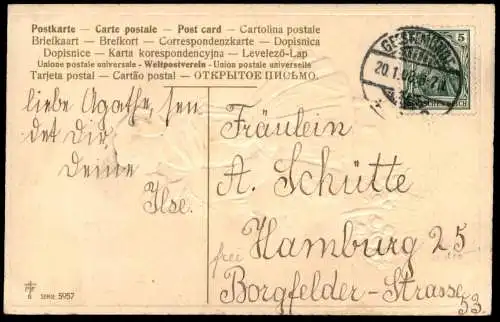 Postkarte — Carte postale — Post card — Cartolina postale
Briefkaart — Brefkort — Correspondenzkarte — Dopisnica
Dopisnice — Karta korespondencyjna — Levelező-Lap
Unione postale universale — Weltpostverein — Union postale universelle
Tarjeta postal — Cartão postal — ОТКРЫТОЕ ПИСЬМО.
5
20.1.
liebe Agathe, sen
det Dir,
Deine
Ilse.
Fräulein
A. Schütte
frei
Hamburg 25
Borgfelder-Strasse
53.
SERIE 5957